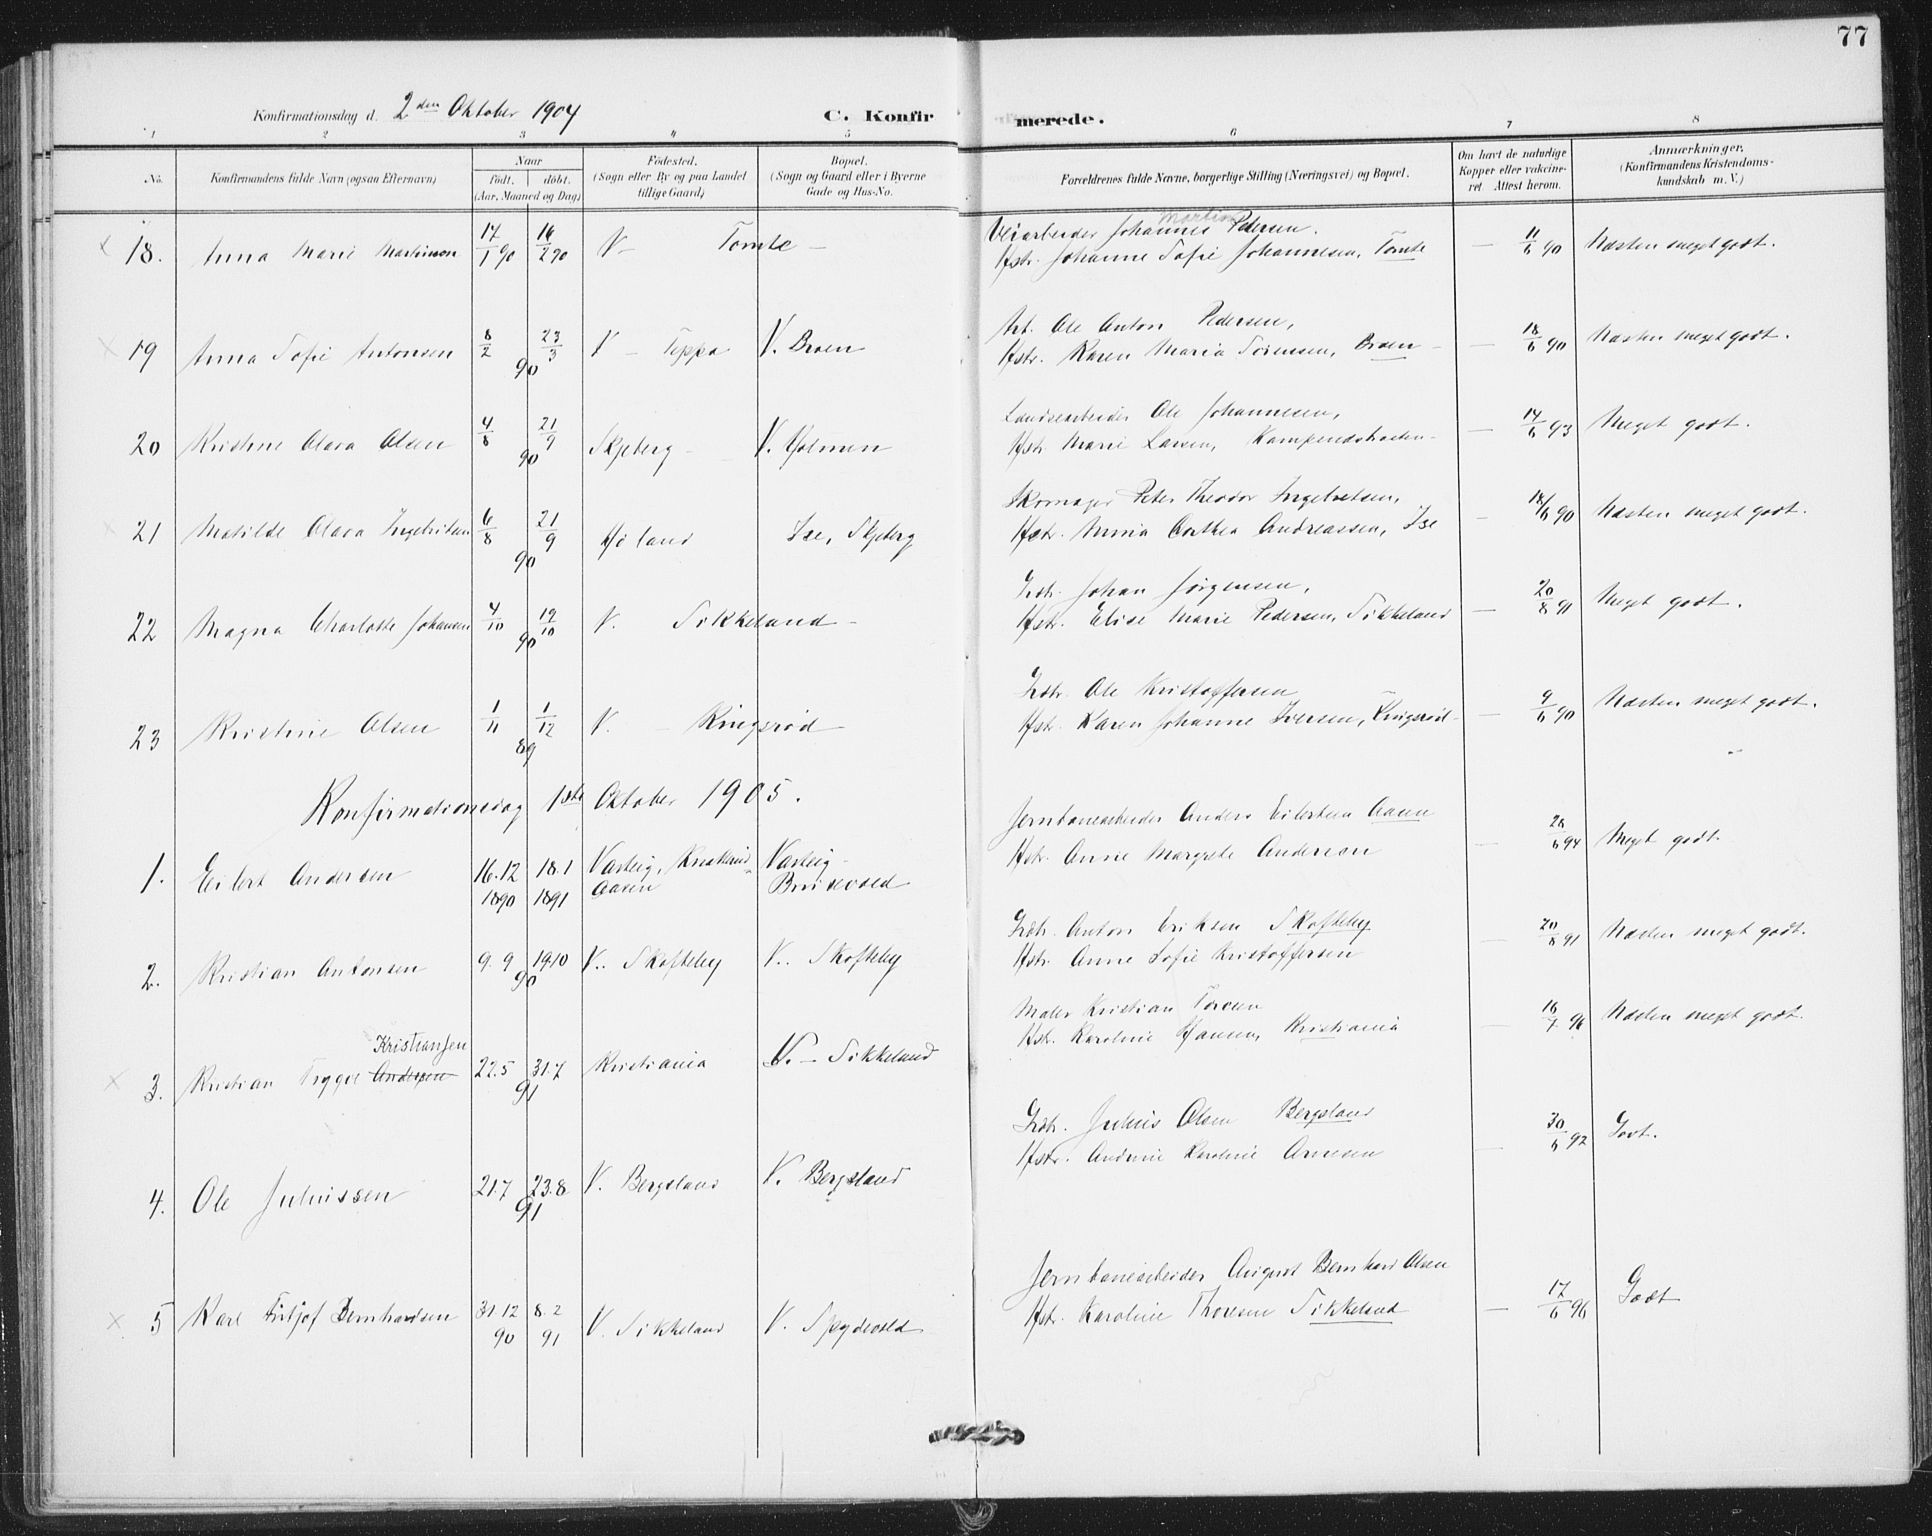 77
Konfirmationsdag d. 2den Oktober 1904 C. Konfirmerede.
1 2 3 4 5 6 7 8
No. Konfirmandens fulde Navn (ogsaa Efternavn) Naar Födested. Bopæl. Forældrenes fulde Navne, borgerlige Stilling (Næringsvei) og Bopæl. Om havt de naturlige Anmærkninger.
födt. döbt. (Sogn eller By og paa Landet (Sogn og Gaard eller i Byerne Kopper eller vakcine- (Konfirmandens Kristendoms-
(Aar, Maaned og Dag) tillige Gaard) Gade og Hus-No. ret. Attest herom. kundskab m. V.)
18. Anna Marie Martinsen 17/1 90 16/2 90 V – Tomte – Veiarbeider Johannes Martin Pedersen.
Hstr. Johanne Sofie Johannesen, Tomte — 11/6 90 Næsten meget godt.
19 Anna Sofie Antonsen 8/2 23/3 90 V – Teppa V. Braen Arb. Ole Anton Pedersen,
Hstr. Karen Maria Sörensen, Braen – — 18/6 90 Næsten meget godt.
20 Kristine Olava Olsen 4/8 21/9 90 Skjeberg – V. Holmen Landsearbeider Ole Johannesen,
Hstr. Marie Larsen, — 14/6 93 Meget godt.
21 Matilde Olava Ingebretsen 6/8 21/9 90 Höland Ise, Skjeberg Skomager Peter Theodor Ingebretsen,
Hstr. Anna Dorthea Andreassen, Ise — 18/6 90 Næsten meget godt.
22 Magna Charlotte Johansen 4/10 19/10 90 V. Sikkeland – Gdbr. Johan Jörgensen,
Hstr. Elise Marie Pedersen, Sikkeland — 20/8 91 Meget godt.
23 Kristine Olsen 1/11 1/12 89 V. – Ringsröd – Gdbr. Ole Kristoffersen
Hstr. Karen Johanne Iversen, Ringsröd – — 9/6 90 Næsten meget godt.
Konfirmationsdag 1ste Oktober 1905.
1. Eilert Andersen 16.12 1890 18.1 1891 Varteig, Aasen Varteig – Brusevold Jernbanearbeider Anders Eilertsen Aasen
Hstr. Anne Margrete Anderson — 20/6 94 Meget godt.
2. Kristian Antonsen 9.9 19.10 90 V.. Skofteby V.. Skofteby Gdbr. Anton Eriksen Skofteby
Hstr. Anne Sofie Kristoffersen — 20/8 91 Næsten meget godt.
3. Kristian Trygve Andersen Kristiansen 22.5 31.7 91 Kristiania V. – Sikkeland Maler Kristian
Hstr. Karoline Hansen, Kristiania — 16/7 96 Næsten meget godt.
4. Ole Juliussen 21.7 23.8 91 V. Bergsland V. Bergsland Gdbr. Julius Olsen Bergsland
Hstr. Andrine Karoline Arnesen — 30/6 92 Godt.
5 Karl Fritjof Bernhardsen 31.12 90 8.2 91 V. Sikkeland V. Spydevold Jernbanearbeider August Bernhard Olsen
Hstr. Karoline Thoresen Sikkeland — 17/6 96 Godt